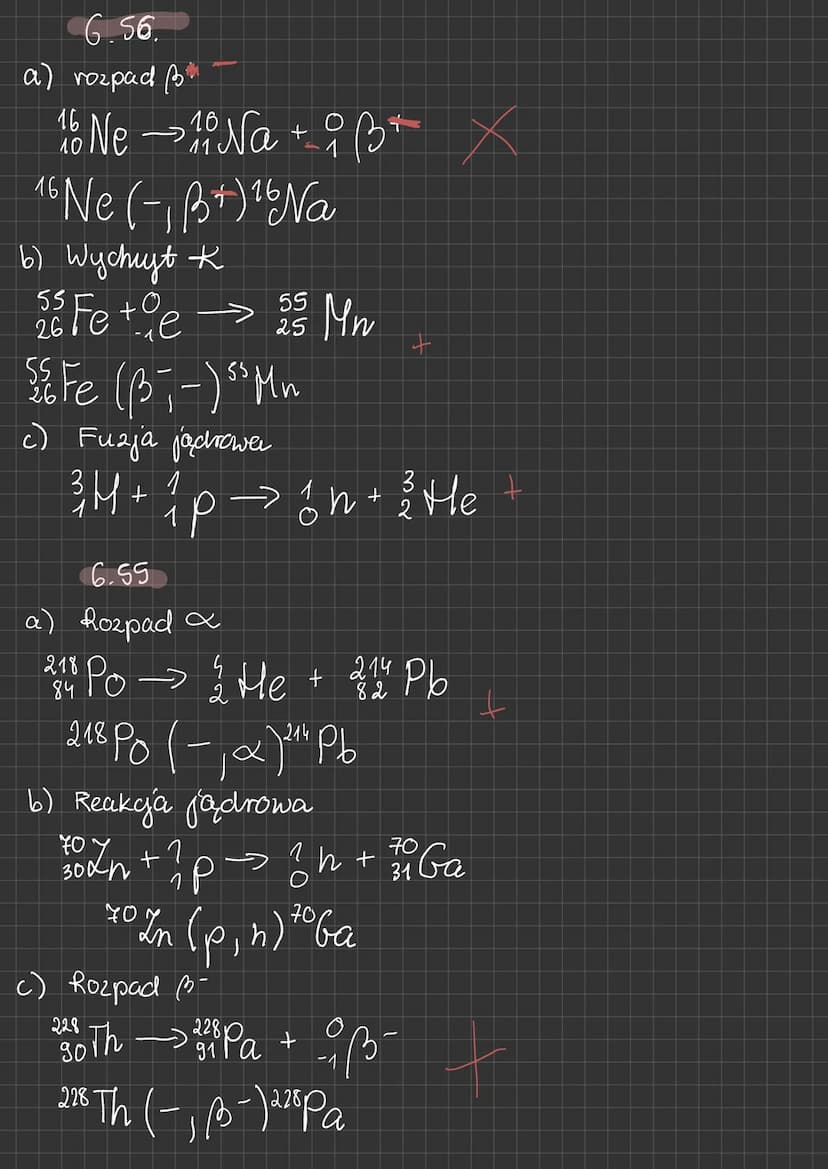 6.56.
a) rozpad β⁻
¹⁶₁₀Ne → ¹⁶₁₁Na + ⁰₋₁β⁻
¹⁶Ne (-, β⁻) ¹⁶Na
b) Wychwyt K
⁵⁵₂₆Fe + ⁰₋₁e → ⁵⁵₂₅Mn +
⁵⁵₂₆Fe (β⁻, -) ⁵⁵Mn
c) Fuzja jądrowa
³₁H + ¹₁p → ¹₀n + ³₂He +
6.55
a) Rozpad α
²¹⁸₈₄Po → ⁴₂He + ²¹⁴₈₂Pb +
²¹⁸Po (-, α) ²¹⁴Pb
b) Reakcja jądrowa
⁷⁰₃₀Zn + ¹₁p → ¹₀n + ⁷⁰₃₁Ga
⁷⁰Zn (p, n) ⁷⁰Ga
c) Rozpad β⁻
²²⁸₉₀Th → ²²⁸₉₁Pa + ⁰₋₁β⁻ +
²²⁸Th (-, β⁻) ²²⁸Pa